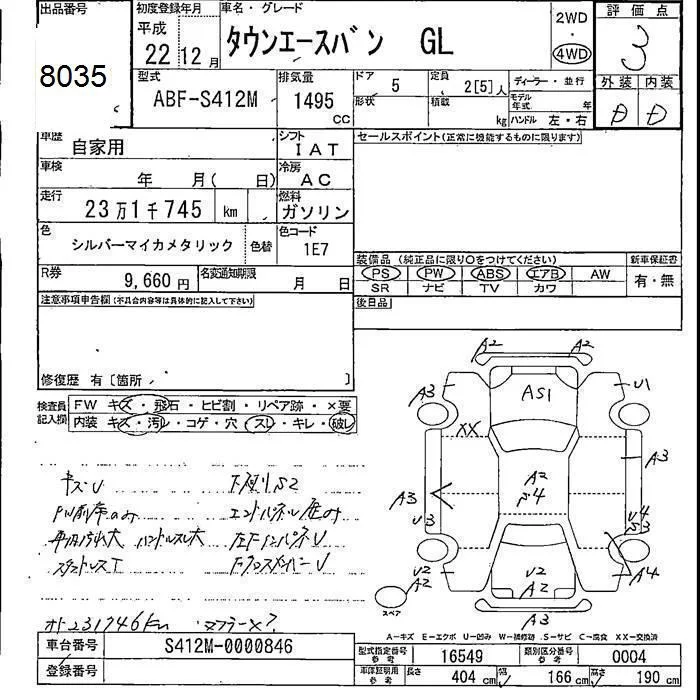 出品番号
8035
初度登録年月
平成
22年 12月
車名・グレード
タウンエースバン GL
2WD
・
4WD
評価点
3
外装 内装
D D
型式
ABF-S412M
排気量
1495
cc
ドア 5
形状
定員 2[5]人
積載 kg
ディーラー・並行
モデル年式 年
ハンドル 左・右
車歴
自家用
シフト
IAT
車検
年 月( 日)
冷房
AC
走行
23万1千745 km
燃料
ガソリン
色
シルバーマイカメタリック
色替
色コード
1E7
R券
9,660円
名変通知期限
月 日
セールスポイント(正常に機能するものに限ります)
装備品 (純正品に限り○をつけてください)
新車保証書
PS PW ABS エアB AW
有・無
SR ナビ TV カワ
後日品
注意事項申告欄(不具合内容等は具体的に記入して下さい)
修復歴 有〔箇所 〕
検査員
記入欄
FW キズ・飛石・ヒビ割・リペア跡・×要
内装 キズ・汚レ・コゲ・穴・スレ・キレ・破レ
キズU
下廻りS2
エンドパネル凹み
ハンドルスレ大
スタッドレスT
オド231746km
マフラー×?
A2
A2
A3
AS1
U1
XX
A3
A2
S4
A3
U3
U4
S3
A4
U2
A2
U2
A2
スペア
A3
A-キズ E-エクボ U-凹み W-補修跡 S-サビ C-腐食 XX-交換済
車台番号
S412M-0000846
登録番号
型式指定番号
参考
16549
類別区分番号
参考
0004
車庫証明用
参考
長さ 404 cm 幅 166 cm 高さ 190 cm